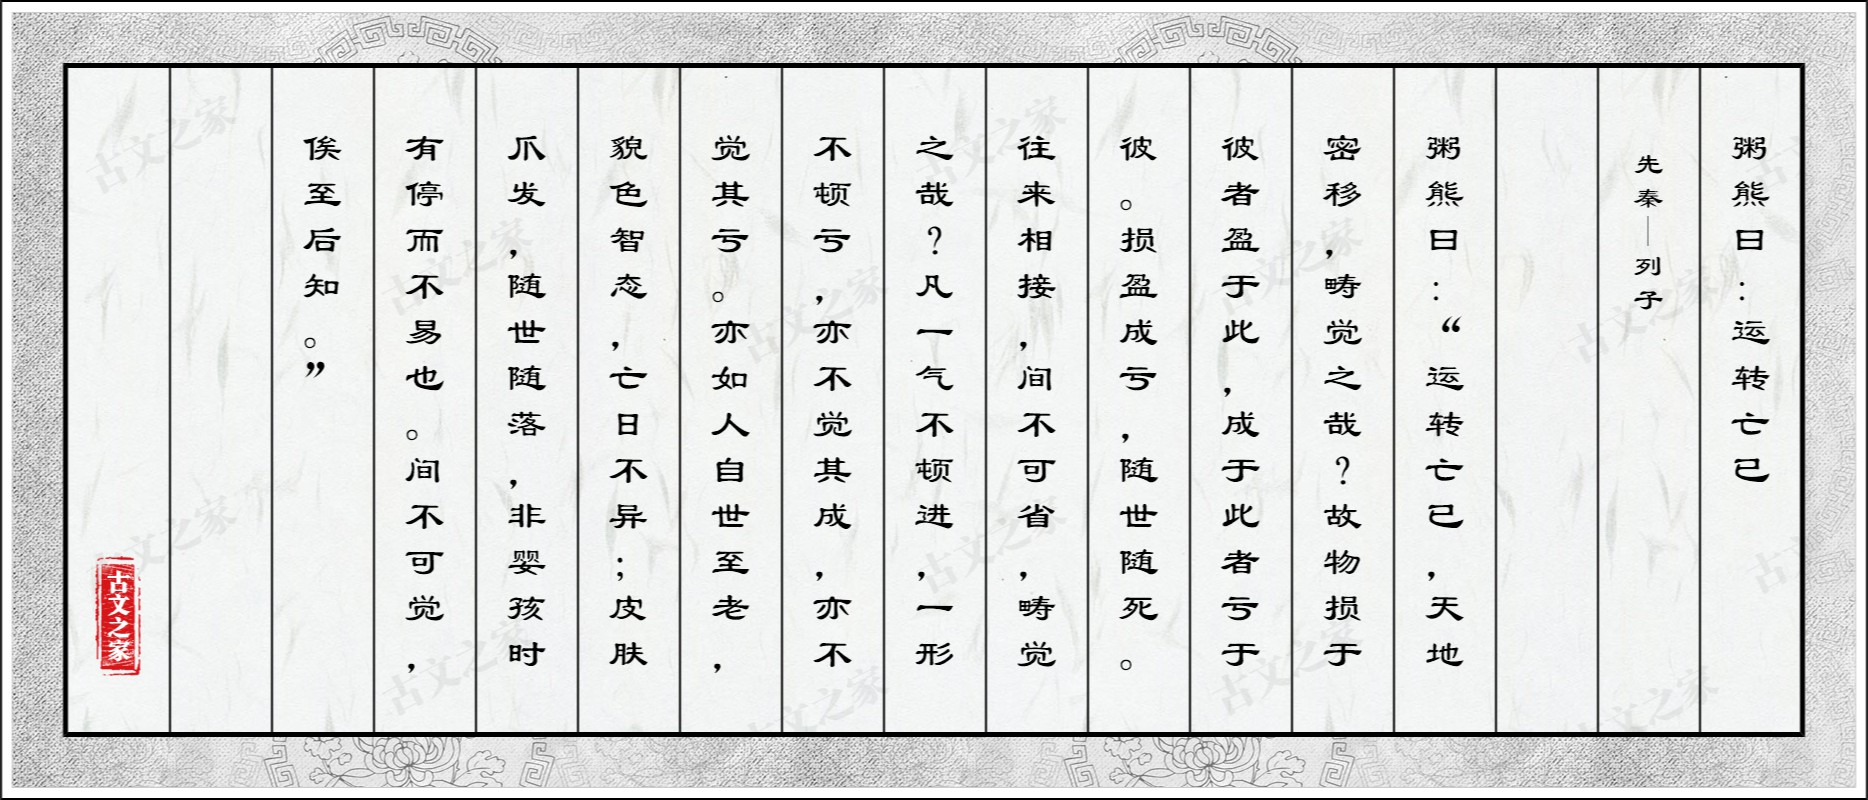 粥熊曰：运转亡已
先秦—列子
粥熊曰：“运转亡已，天地
密移，畴觉之哉？故物损于
彼者盈于此，成于此者亏于
彼。损盈成亏，随世随死。
往来相接，间不可省，畴觉
之哉？凡一气不顿进，一形
不顿亏，亦不觉其成，亦不
觉其亏。亦如人自世至老，
貌色智态，亡日不异；皮肤
爪发，随世随落，非婴孩时
有停而不易也。间不可觉，
俟至后知。”
古文之家